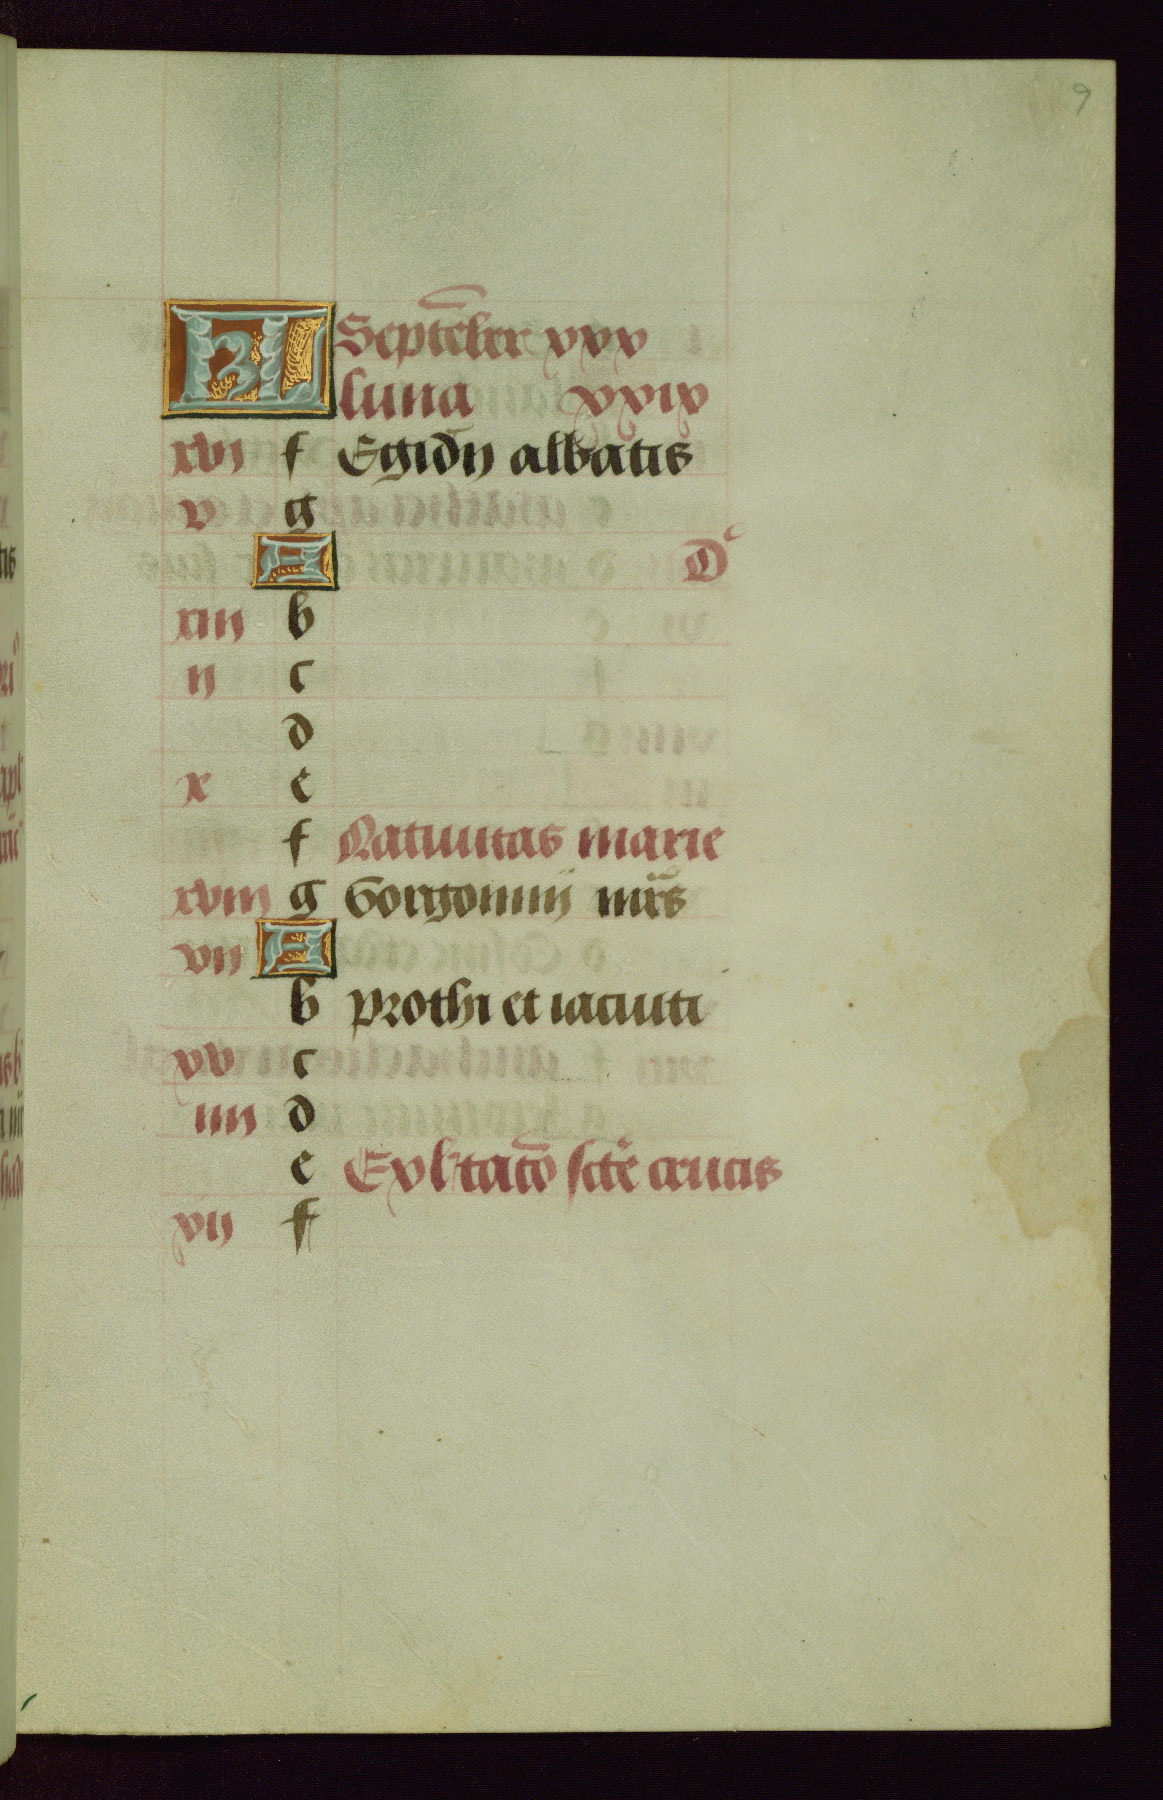 9
KL Septēber xxx
luna xxix
xvi f Egidij abbatis
v g
A D͛
xiii b
ii c
d
x e
f Natiuitas marie
xviii g Gorgonnij mr̄s
vii A
b prothi et iacinti
xv c
iiii d
e Exl'tatō sctē crucis
xii f